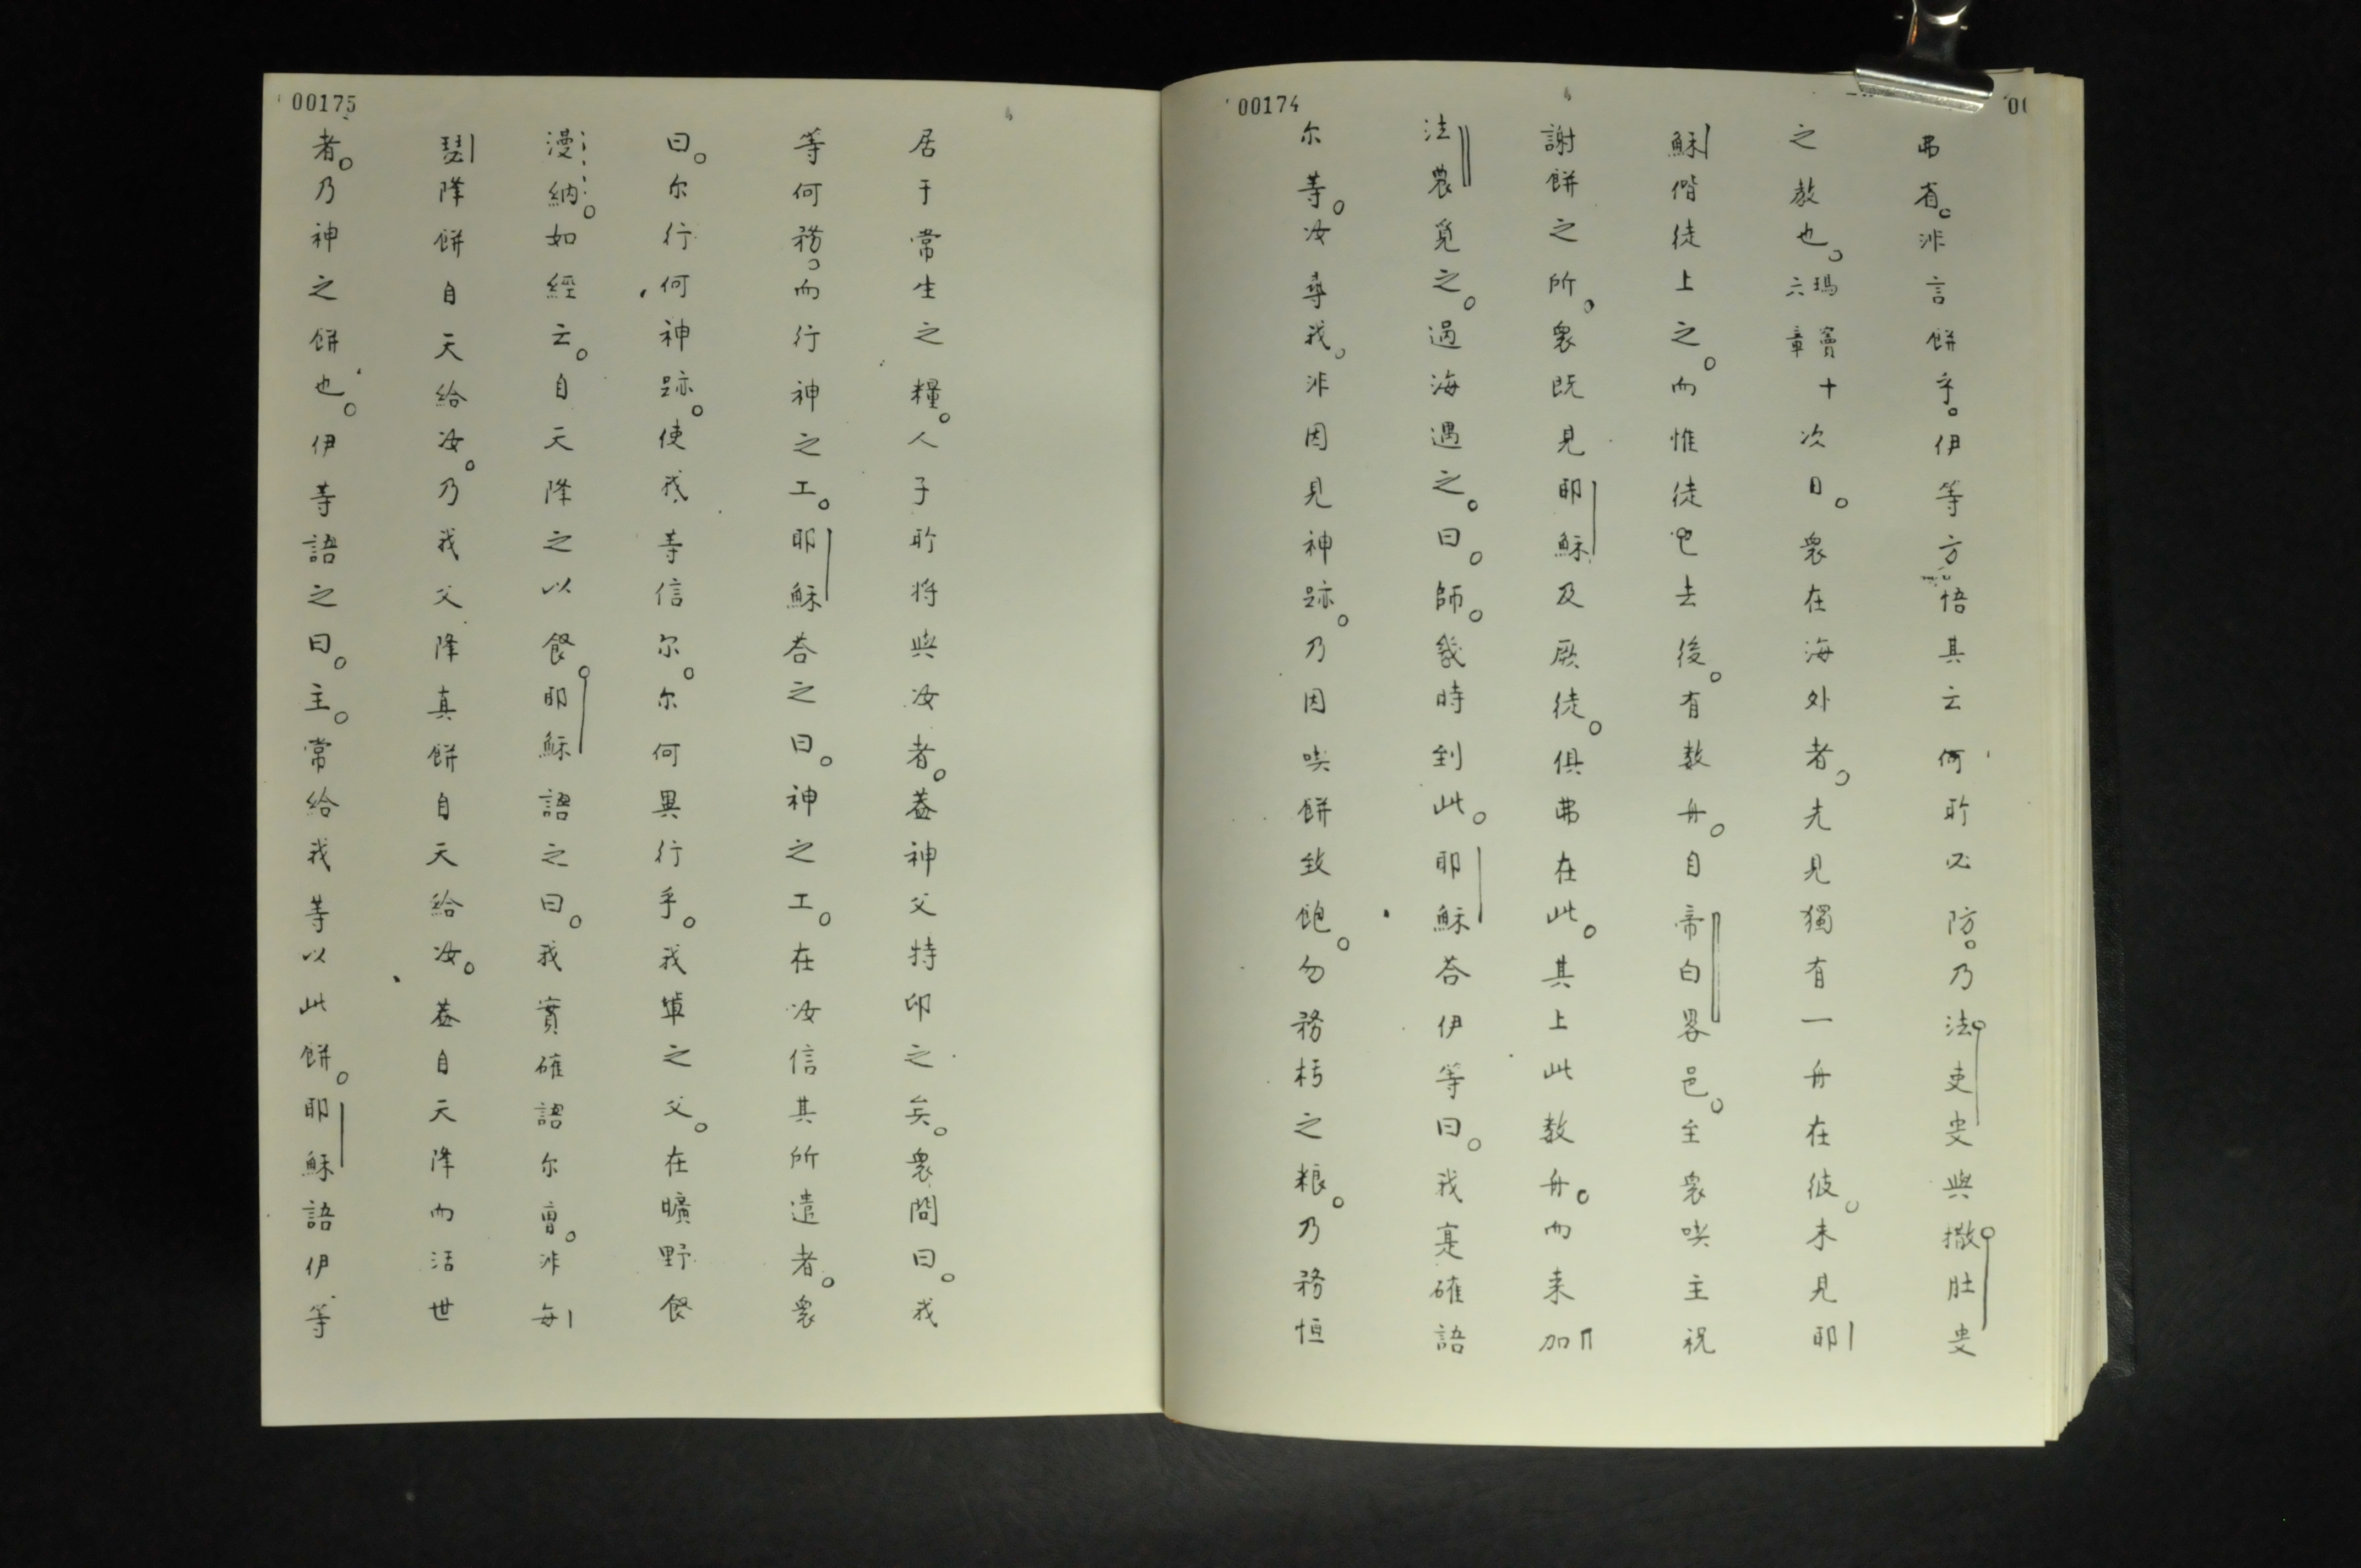 00174
弗省。非言餅乎。伊等方悟其云何所必防。乃法吏叟與撒肚叟
之教也。瑪竇十六章 次日。衆在海外者。先見獨有一舟在彼。未見耶
穌偕徒上之。而惟徒已去後。有数舟。自帝白畧邑。至衆喫主祝
謝餅之所。衆既見耶穌及厥徒。俱弗在此。其上此数舟。而来加
法農覓之。過海遇之。曰。師。幾時到此。耶穌荅伊等曰。我寔確語
尔等。汝尋我。非因見神跡。乃因喫餅致飽。勿務朽之粮。乃務恒
00175
居于常生之糧。人子所将與汝者。蓋神父特印之矣。衆問曰。我
等何務。而行神之工。耶穌荅之曰。神之工。在汝信其所遣者。衆
曰。尔行何神跡。使我等信尔。尔何異行乎。我輩之父。在曠野餐
漫納。如經云。自天降之以餐。耶穌語之曰。我實確語尔曹。非每
瑟降餅自天給汝。乃我父降真餅自天給汝。蓋自天降而活世
者。乃神之餅也。伊等語之曰。主。常給我等以此餅。耶穌語伊等